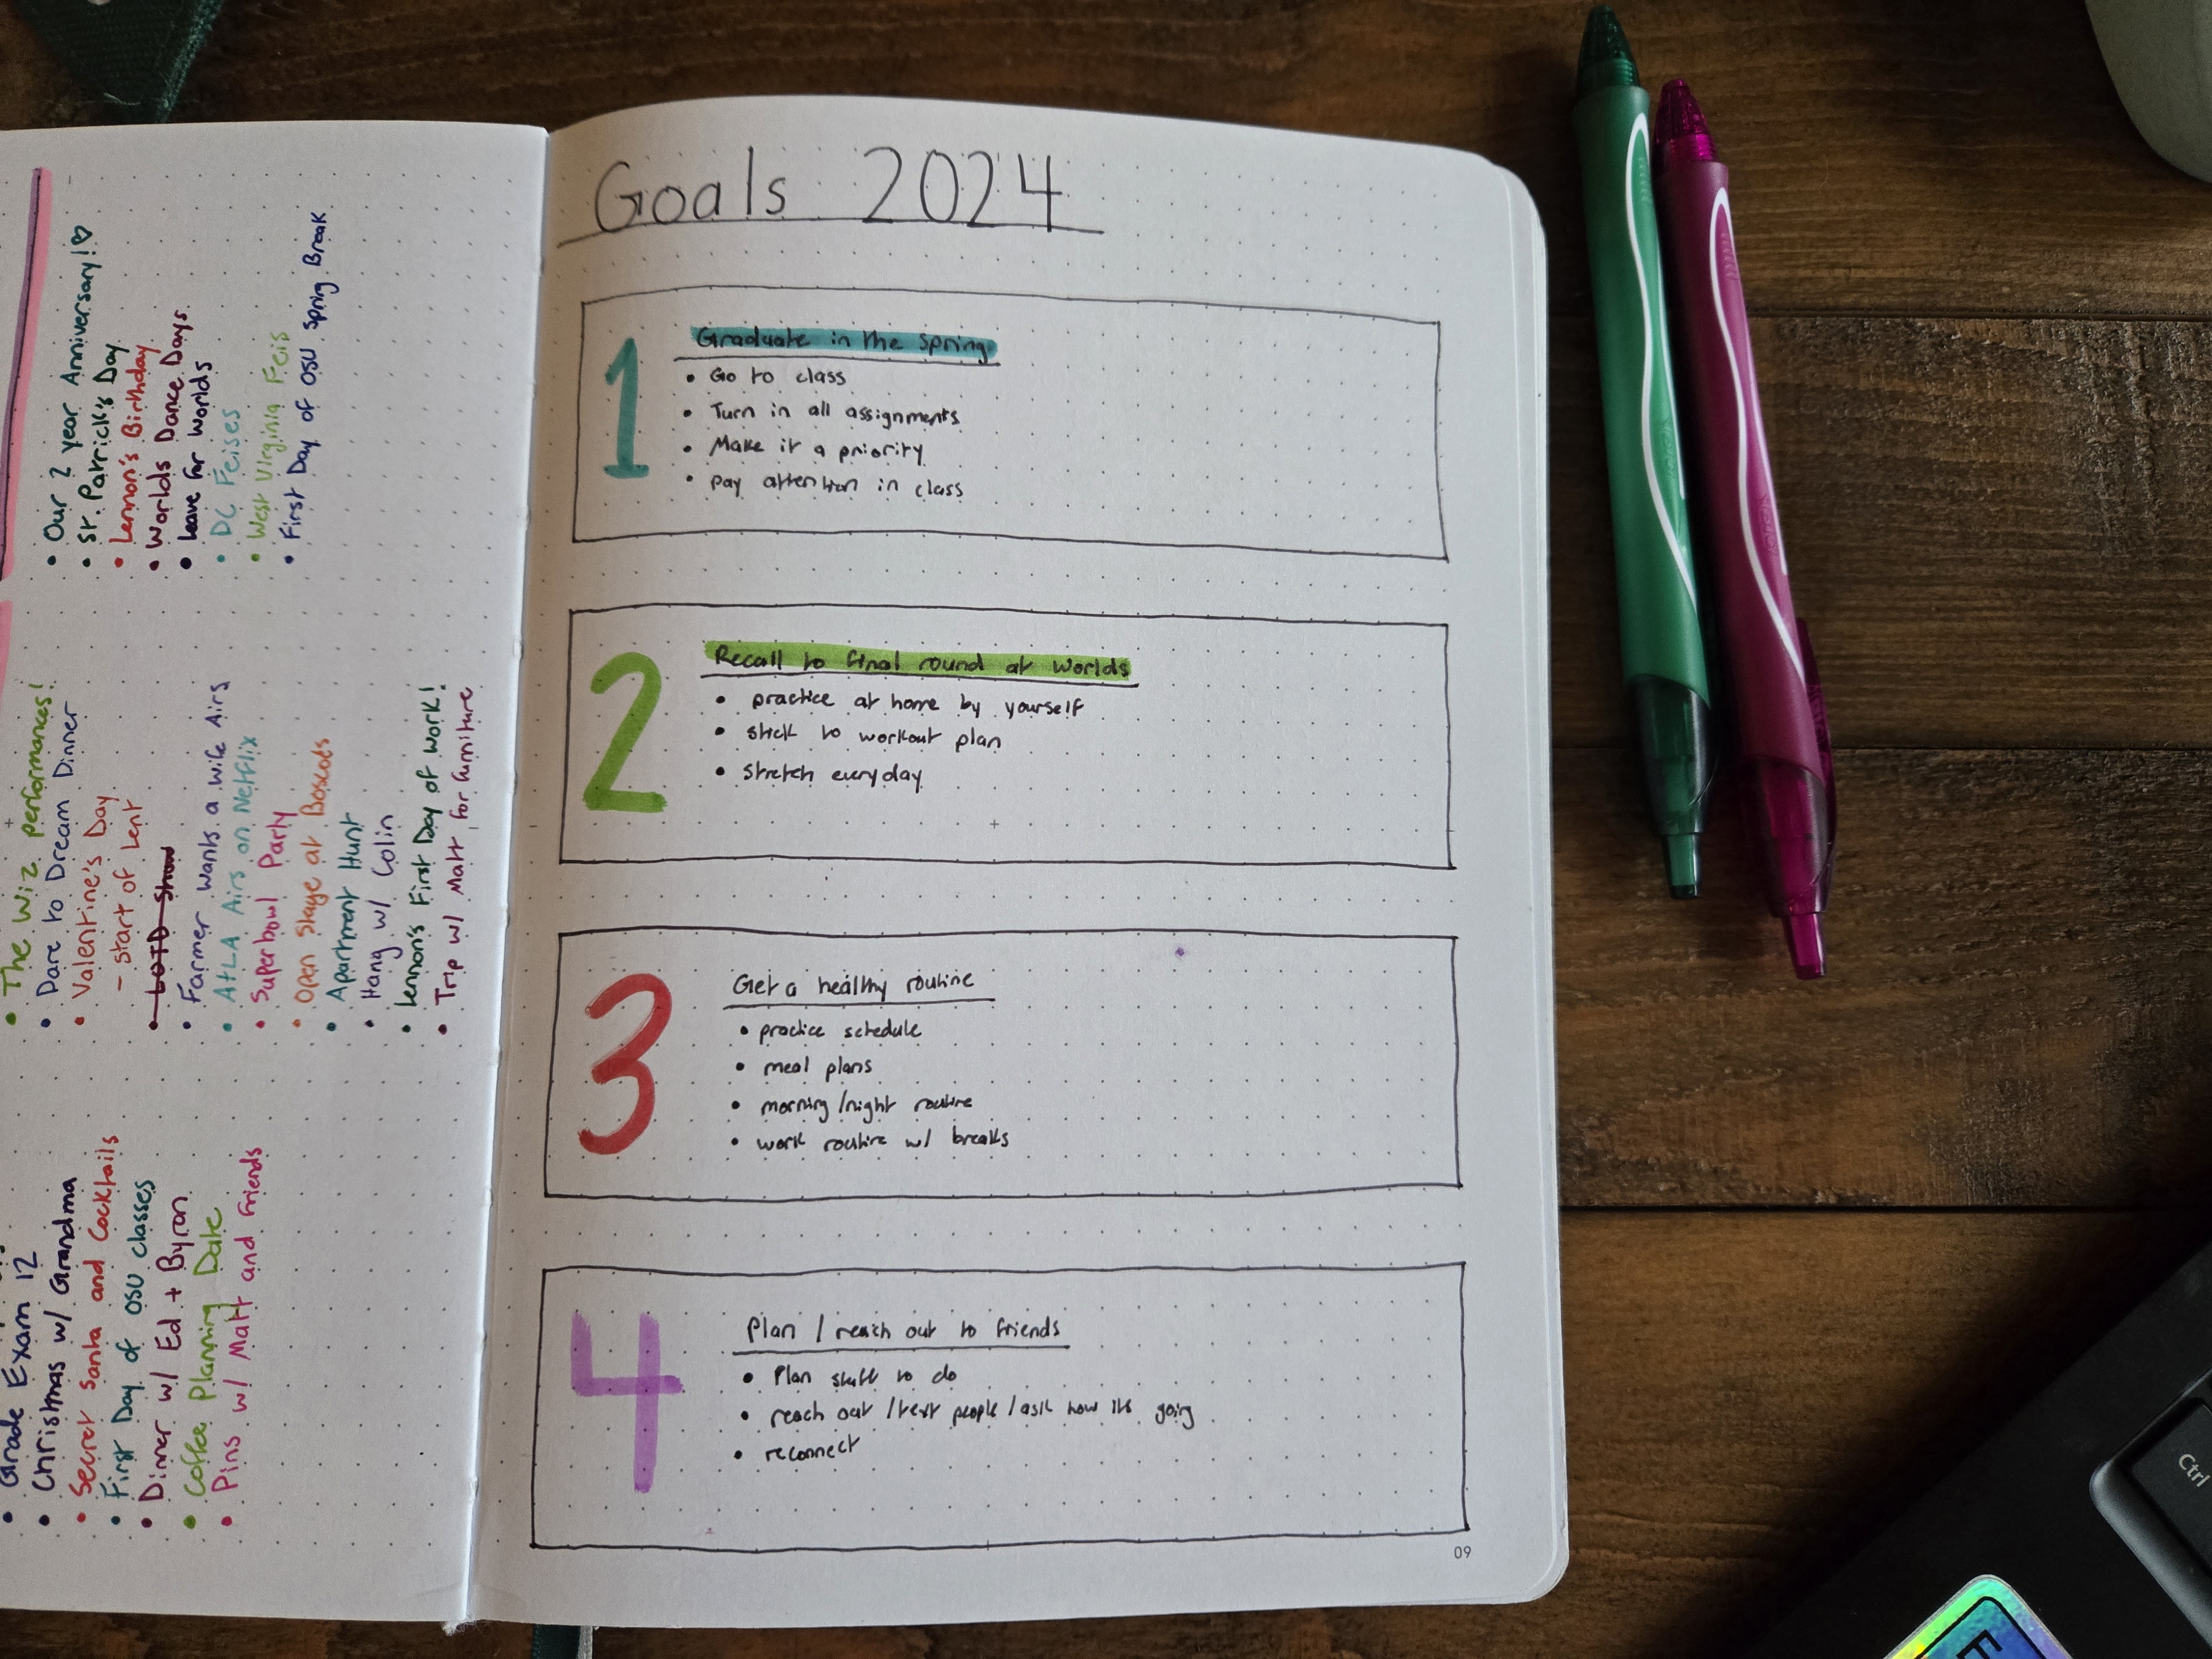 Our 2 year Anniversary!♡
St. Patrick's Day
Lennon's Birthday
Worlds Dance Days
Leave for Worlds
DC Feises
West Virginia Feis
First Day of OSU Spring Break
The Wiz performances!
Dare to Dream Dinner
Valentine's Day
- start of Lent
LOTD Show
Farmer wants a wife Airs
AtLA Airs on Netflix
Superbowl Party
Open Stage at Boscoes
Apartment Hunt
Hang w/ Colin
Lennon's First Day of work!
Trip w/ Matt for furniture
Grade Exam 12
Christmas w/ Grandma
Secret santa and Cocktails
First Day of OSU classes
Dinner w/ Ed + Byron
Coffee Planning Date
Pins w/ Matt and friends
Goals 2024
1
Graduate in the Spring
• Go to class
• Turn in all assignments
• Make it a priority
• pay attention in class
2
Recall to final round at Worlds
• practice at home by yourself
• stick to workout plan
• stretch everyday
3
Get a healthy routine
• practice schedule
• meal plans
• morning/night routine
• work routine w/ breaks
4
Plan / reach out to friends
• Plan stuff to do
• reach out /text people/ask how its going
• reconnect
09
Ctrl